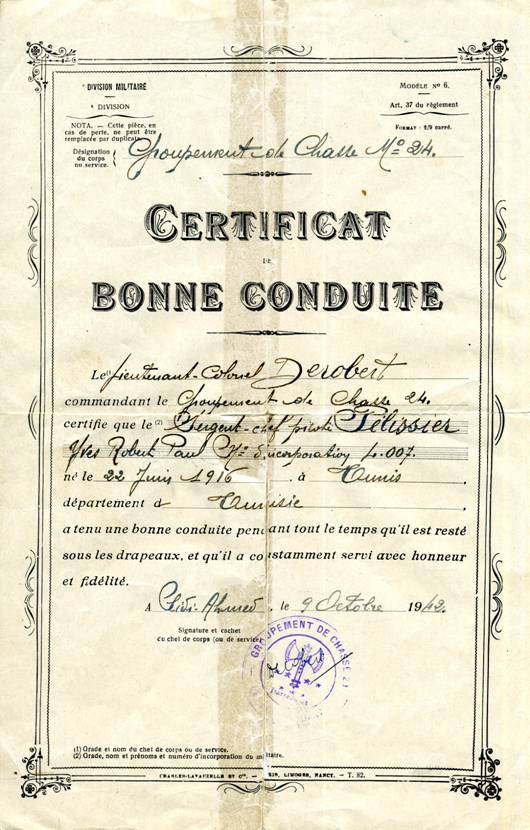 ° DIVISION MILITAIRE
° DIVISION
NOTA. — Cette pièce, en cas de perte, ne peut être remplacée par duplicata.
MODÈLE N° 6.
Art. 37 du règlement
FORMAT : 2/9 carré.
Désignation du corps ou service. { Groupement de Chasse N° 24.
CERTIFICAT
DE
BONNE CONDUITE
Le (1) Lieutenant-Colonel Derobert
commandant le Groupement de Chasse 24.
certifie que le (2) Sergent-chef pilote Pélissier
Yves Robert Paul N° d'incorporation 4.007.
né le 22 Juin 1916, à Tunis,
département d Tunisie
a tenu une bonne conduite pendant tout le temps qu'il est resté
sous les drapeaux, et qu'il a constamment servi avec honneur
et fidélité.
A Sidi-Ahmed, le 9 Octobre 1943.
Signature et cachet
du chef de corps (ou de service)
GROUPEMENT DE CHASSE
(1) Grade et nom du chef de corps ou de service.
(2) Grade, nom et prénoms et numéro d'incorporation du militaire.
CHARLES-LAVAUZELLE ET Cie. — LIMOGES, NANCY. — T. 82.